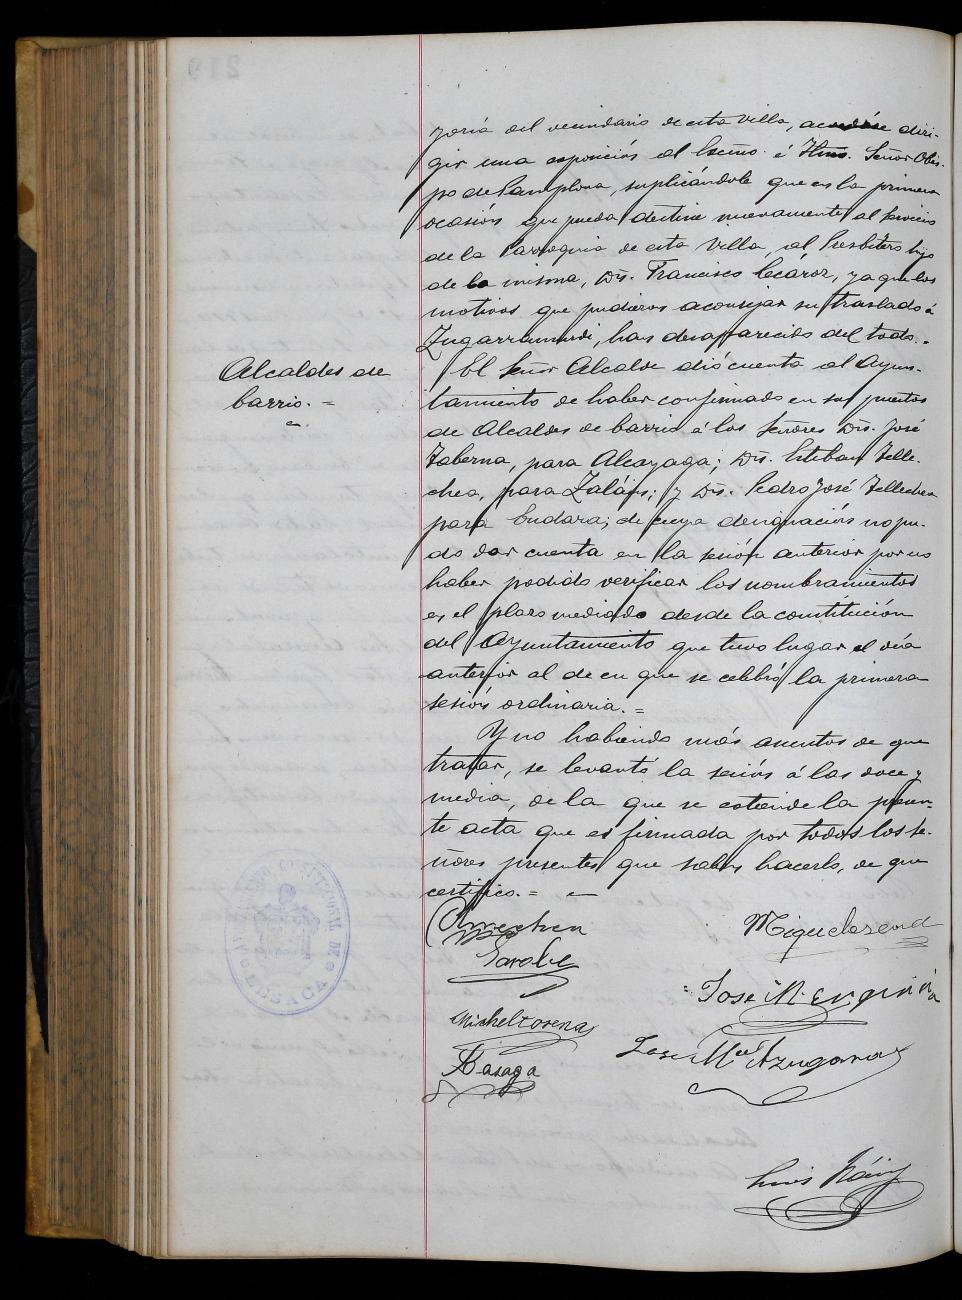 yoría del vecindario de esta villa, acuérdase diri-
gir una exposición al Excmo. é Iltmo. Señor Obis-
po de Pamplona, suplicándole que en la primera
ocasión que pueda destine nuevamente al servicio
de la Parroquia de esta Villa, al Presbítero hijo
de la misma, Dn. Francisco Lecároz, ya que los
motivos que pudieron aconsejar su traslado á
Zugarramurdi, han desaparecido del todo.-
Alcaldes de
barrio.=
El Señor Alcalde dió cuenta al Ayun-
tamiento de haber confirmado en sus puestos
de Alcaldes de barrio á los Señores Dn. José
Taberna, para Alcayaga; Dn. Esteban Telle-
chea, para Zaláin; y Dn. Pedro José Tellechea
para Endara; de cuya designación no pu-
do dar cuenta en la sesión anterior por no
haber podido verificar los nombramientos
en el plazo mediado desde la constitución
del Ayuntamiento que tuvo lugar el día
anterior al de en que se celebró la primera
sesión ordinaria.=
Y no habiendo más asuntos de que
tratar, se levantó la sesión á las doce y
media, de la que se extiende la presen-
te acta que es firmada por todos los se-
ñores presentes que saben hacerlo, de que
certifico.=
Sarobe
Michelzorena
José M. Erquicia
José Ma. Azugaray
Luis
AYUNTAMIENTO CONSTITUCIONAL DE
LESACA
219